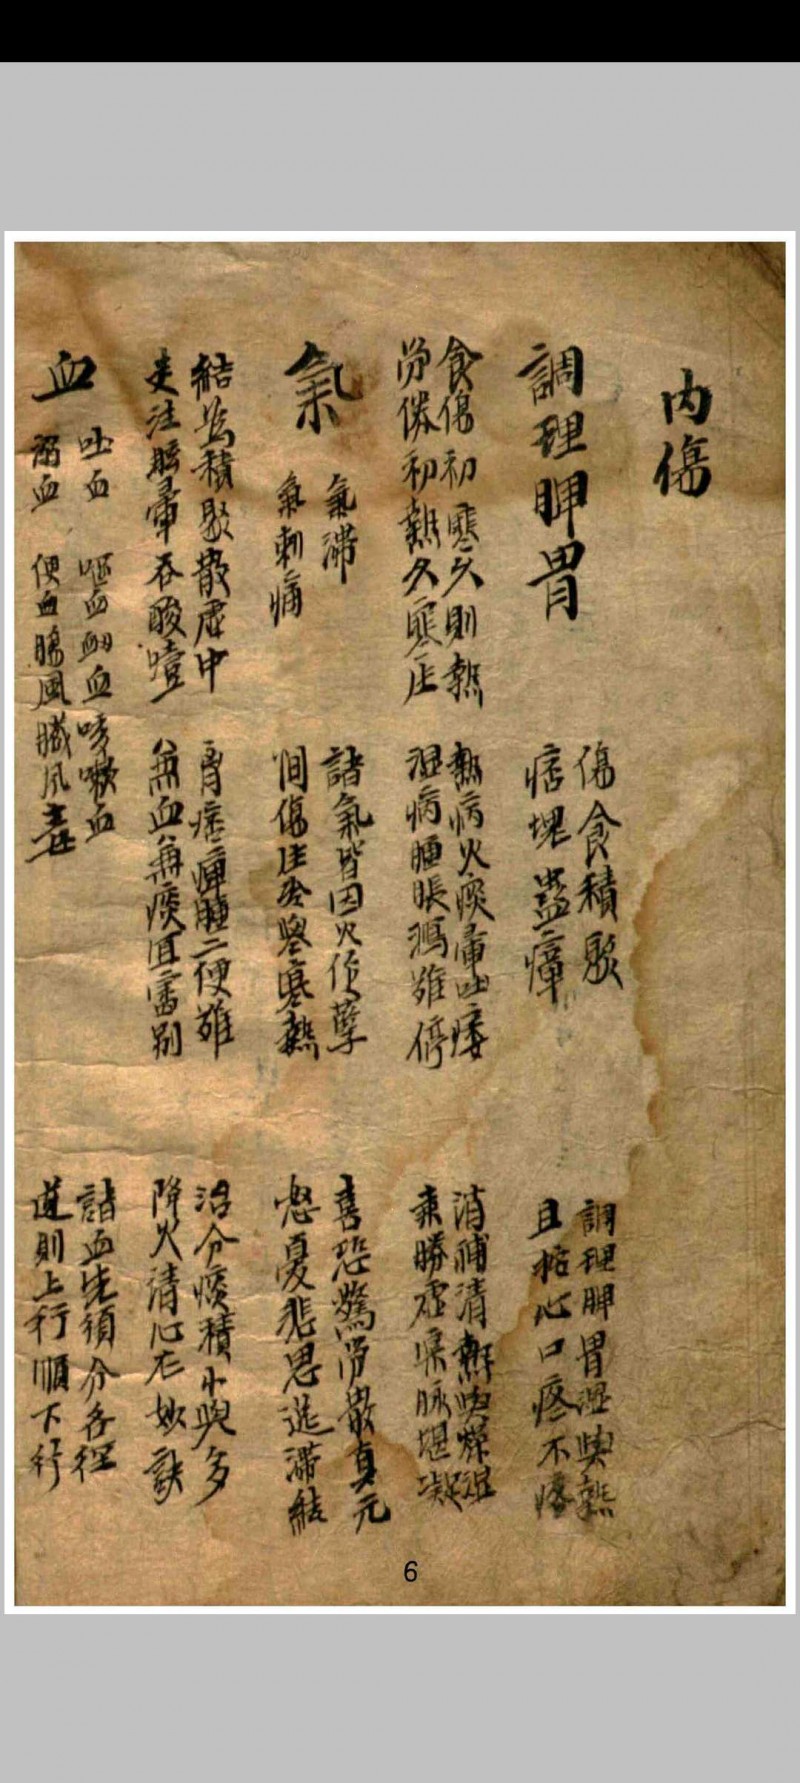 內傷
調理脾胃
傷食積聚
痞塊蠱瘴
調理脾胃湿與熱
且枯心口疼不疼
食傷初寒久則熱
労倦初熱久寒圧
熱病火痰暈吐痿
湿病腫脹瀉難停
消補清熱與燥湿
乘勝虛渠脉堪凝
氣
氣滯
氣刺痛
諸氣皆因火作孽
間傷生冷與寒熱
喜恐驚労散真元
怒憂悲思迯滯結
結爲積聚散虛中
走注眩暈吞酸噎
胃痞痺腫二便難
無血無痰宜審別
治分痰積小與多
降火清心不妙訣
血
吐血 嘔血 衂血 咳嗽血
溺血 便血 腸風臟風毒
諸血先須分各徑
道則上行順下行
6